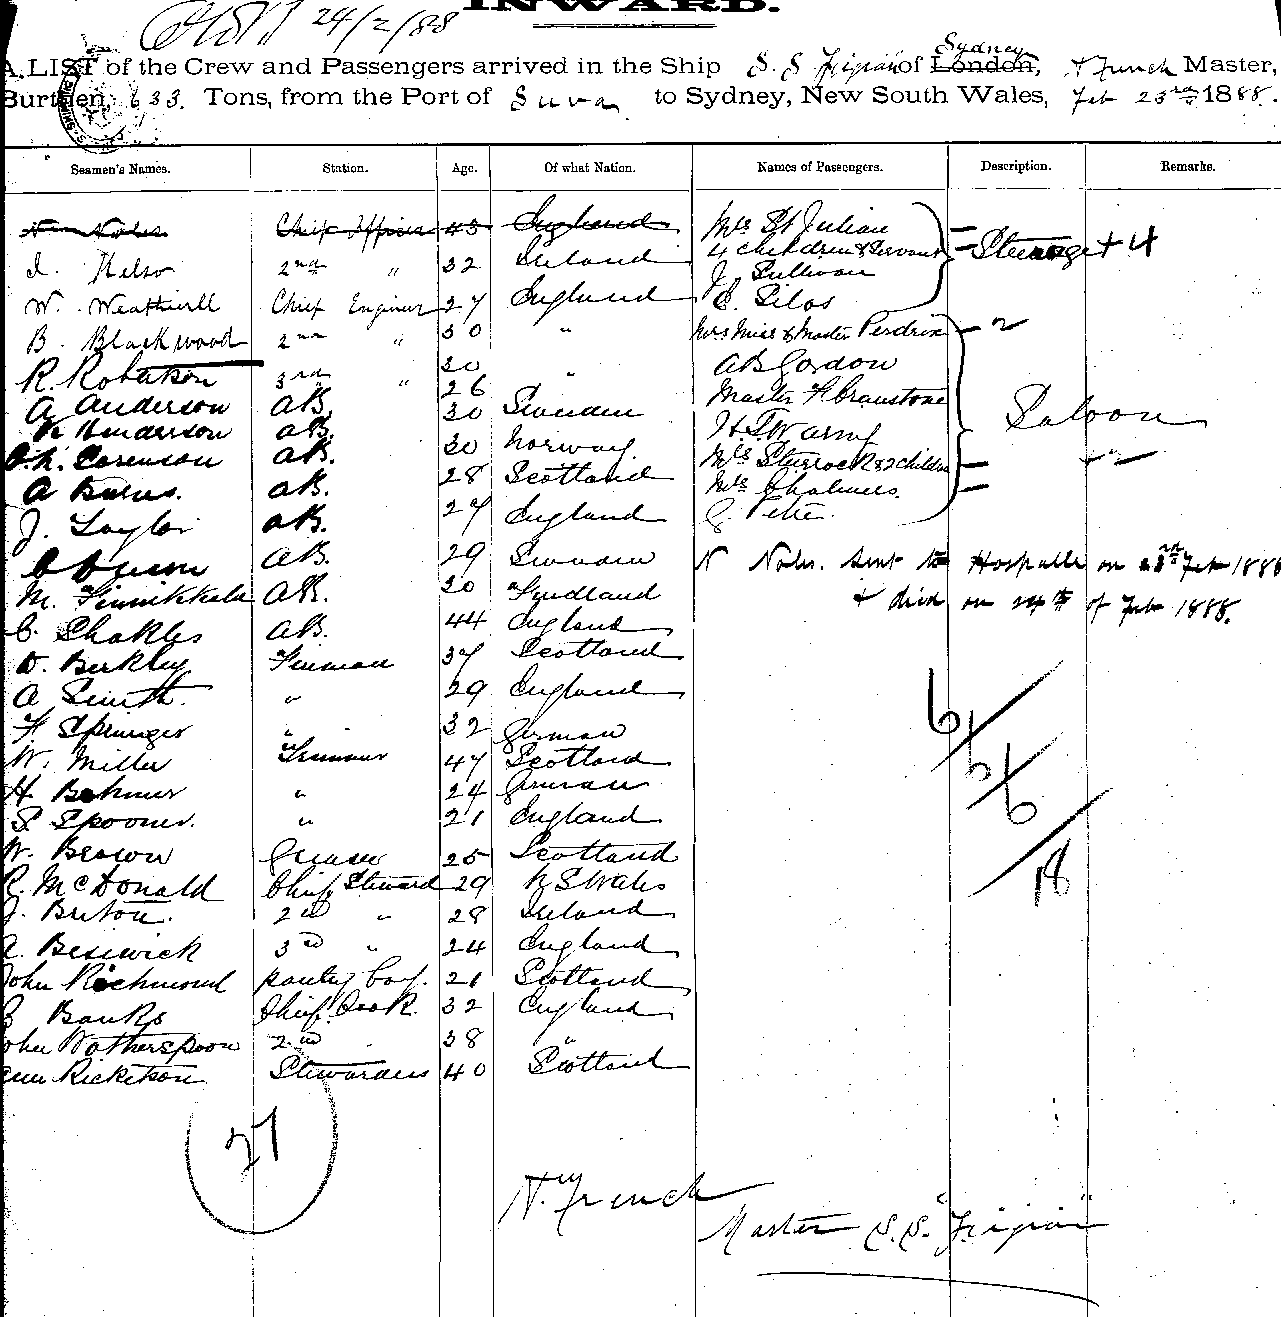 INWARD.
24/2/88
A LIST of the Crew and Passengers arrived in the Ship S.S Fijian of London, Sydney French Master,
Burthen, 633 Tons, from the Port of Suva to Sydney, New South Wales, Feb 23rd 1888.
Seamen's Names. Station. Age. Of what Nation. Names of Passengers. Description. Remarks.
N Noles Chief Officer 43 England Mrs St Julian
Kelso 2nd " 32 Ireland 4 children & Servant Steerage + 4
J. Sullivan
W. Weatherill Chief Engineer 27 England Silas
B. Blackwood 2nd " 30 " Mrs Miss & Master Perdrix
R. Robertson 3rd " 30 " A B Gordon
A Anderson AB. 26 Sweden Master Cranstone
Henderson AB. 30 Norway Saloon
Sorenson AB. 30 Scotland Mrs Sturrock & 2 children
A Burns. AB. 28 England Mrs Chalmers
J. Taylor AB. 27 Sweden
AB. 29
N Noles. Sent to Hospital on 23rd Feb 1888
M. Finnikkala AB. 30
+ died on 24th of Feb 1888.
C. Shakles AB. 44 England
D. Berkley Fireman 37 Scotland
A Smith " 29 England
F Springer " 32 German
W. Miller Trimmer 47 Scotland
H Behmer " 24 German
S Spooner. " 21 England
W. Brown Greaser 25 Scotland
R. McDonald Chief Steward 29 N S Wales
J. Briton. 2nd " 28 Ireland
Beswick 3rd " 24 England
John Richmond pantry boy. 21 Scotland
Banks Chief Cook 32 England
John Wotherspoon 2nd 38 "
Ricketson Stewardess 40 Scotland
6/6/6/18
27
Wm French
Master S.S. "Fijian"